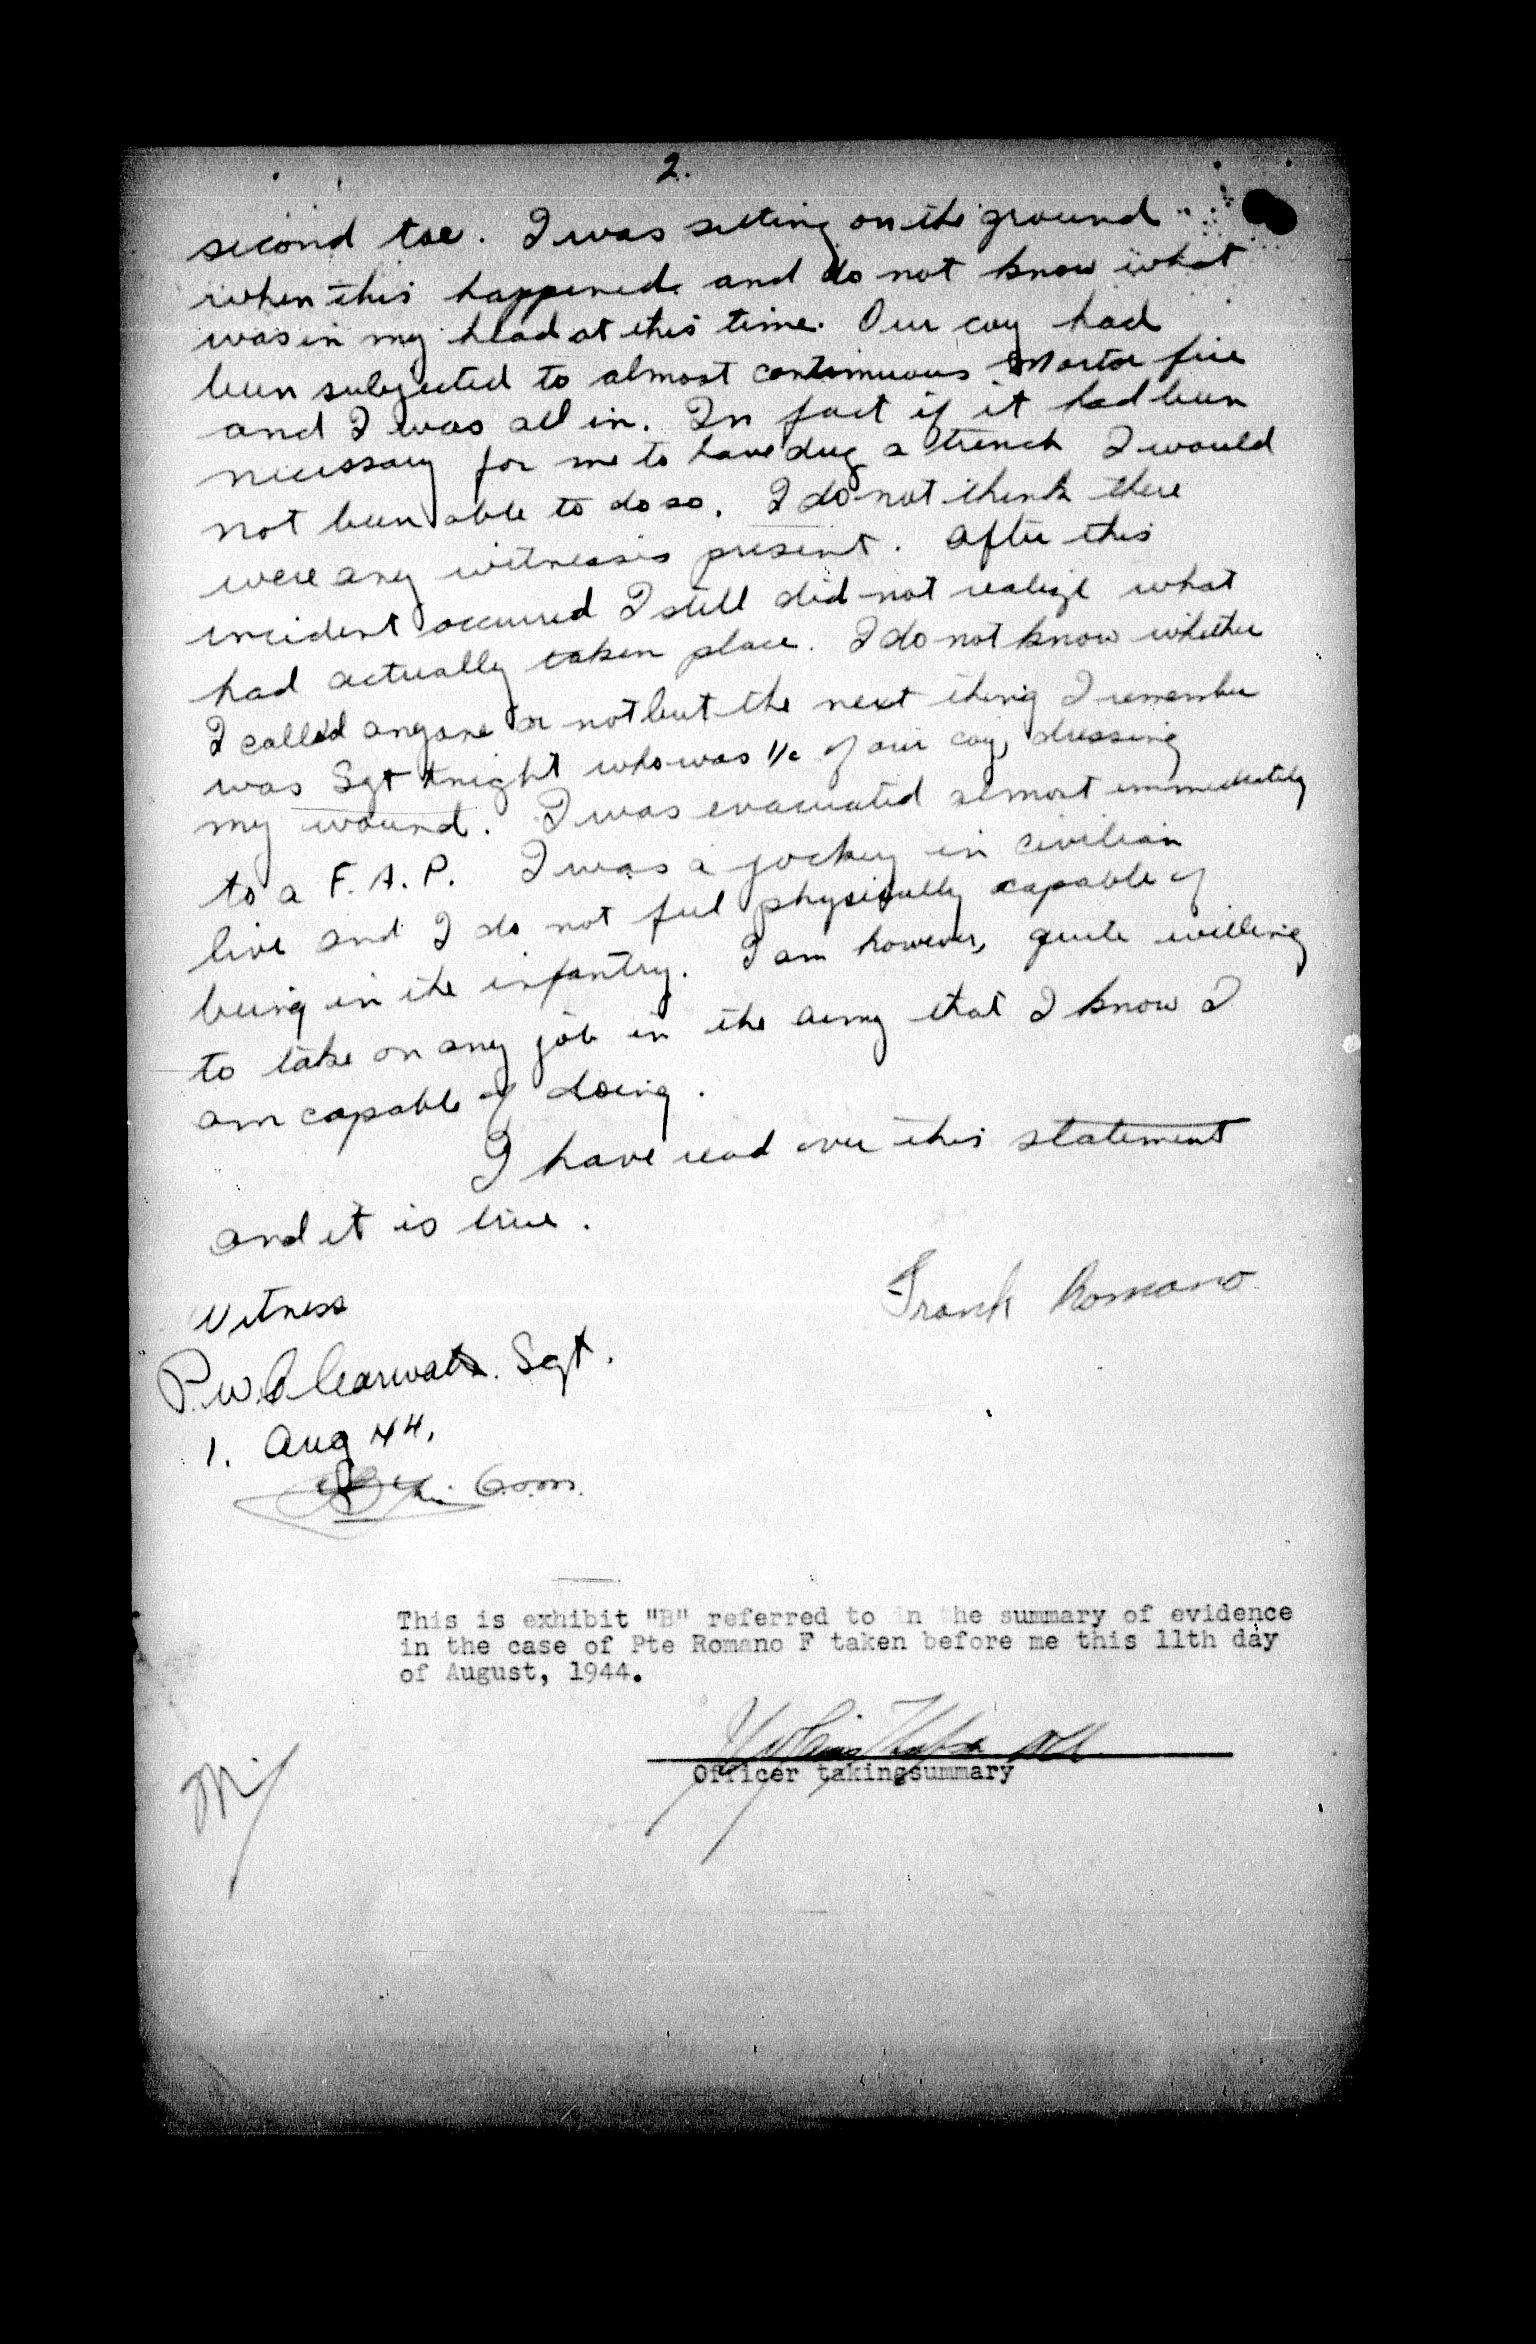 2.
second toe. I was sitting on the ground
when this happened and do not know what
was in my head at this time. Our coy had
been subjected to almost continuous Mortar fire
and I was all in. In fact if it had been
necessary for me to have dug a trench I would
not been able to do so. I do not think there
were any witnesses present. After this
incident occurred I still did not realize what
had actually taken place. I do not know whether
I called anyone or not but the next thing I remember
was Sgt Knight who was i/c of our coy, dressing
my wound. I was evacuated almost immediately
to a F.A.P. I was a jockey in civilian
live and I do not feel physically capable of
being in the infantry. I am however, quite willing
to take on any job in the army that I know I
am capable of doing.
I have read over this statement
and it is true.
Frank Romano
Witness
P.W. Sgt.
1. Aug 44.
This is exhibit "B" referred to in the summary of evidence
in the case of Pte Romano F taken before me this 11th day
of August, 1944.
Officer takingsummary